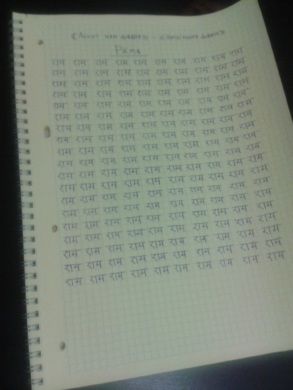 Рама
राम राम राम राम राम राम राम राम राम राम
राम राम राम राम राम राम राम राम राम राम
राम राम राम राम राम राम राम राम राम राम
राम राम राम राम राम राम राम राम राम राम
राम राम राम राम राम राम राम राम राम राम
राम राम राम राम राम राम राम राम राम राम
राम राम राम राम राम राम राम राम राम राम
राम राम राम राम राम राम राम राम राम राम
राम राम राम राम राम राम राम राम राम राम
राम राम राम राम राम राम राम राम राम राम
राम राम राम राम राम राम राम राम राम राम
राम राम राम राम राम राम राम राम राम राम
राम राम राम राम राम राम राम राम राम राम
राम राम राम राम राम राम राम राम राम राम
राम राम राम राम राम राम राम राम राम राम
राम राम राम राम राम राम राम राम राम राम
राम राम राम राम राम राम राम राम राम राम
राम राम राम राम राम राम राम राम राम राम
राम राम राम राम राम राम राम राम राम राम